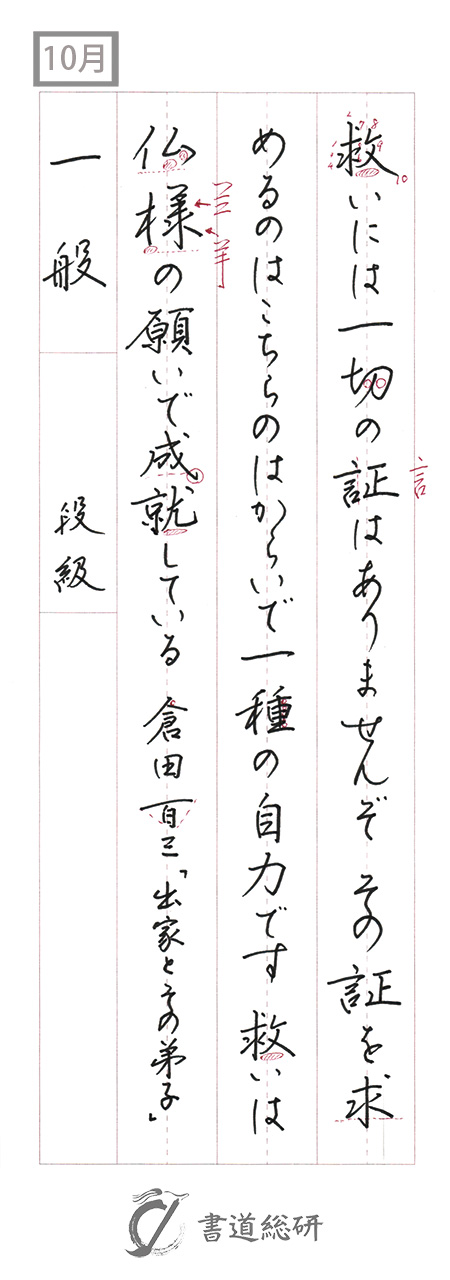 10月
救いには一切の証はありませんぞ その証を求
めるのはこちらのはからいで一種の自力です 救いは
仏様の願いで成就している 倉田百三「出家とその弟子」
一般
段級
書道総研